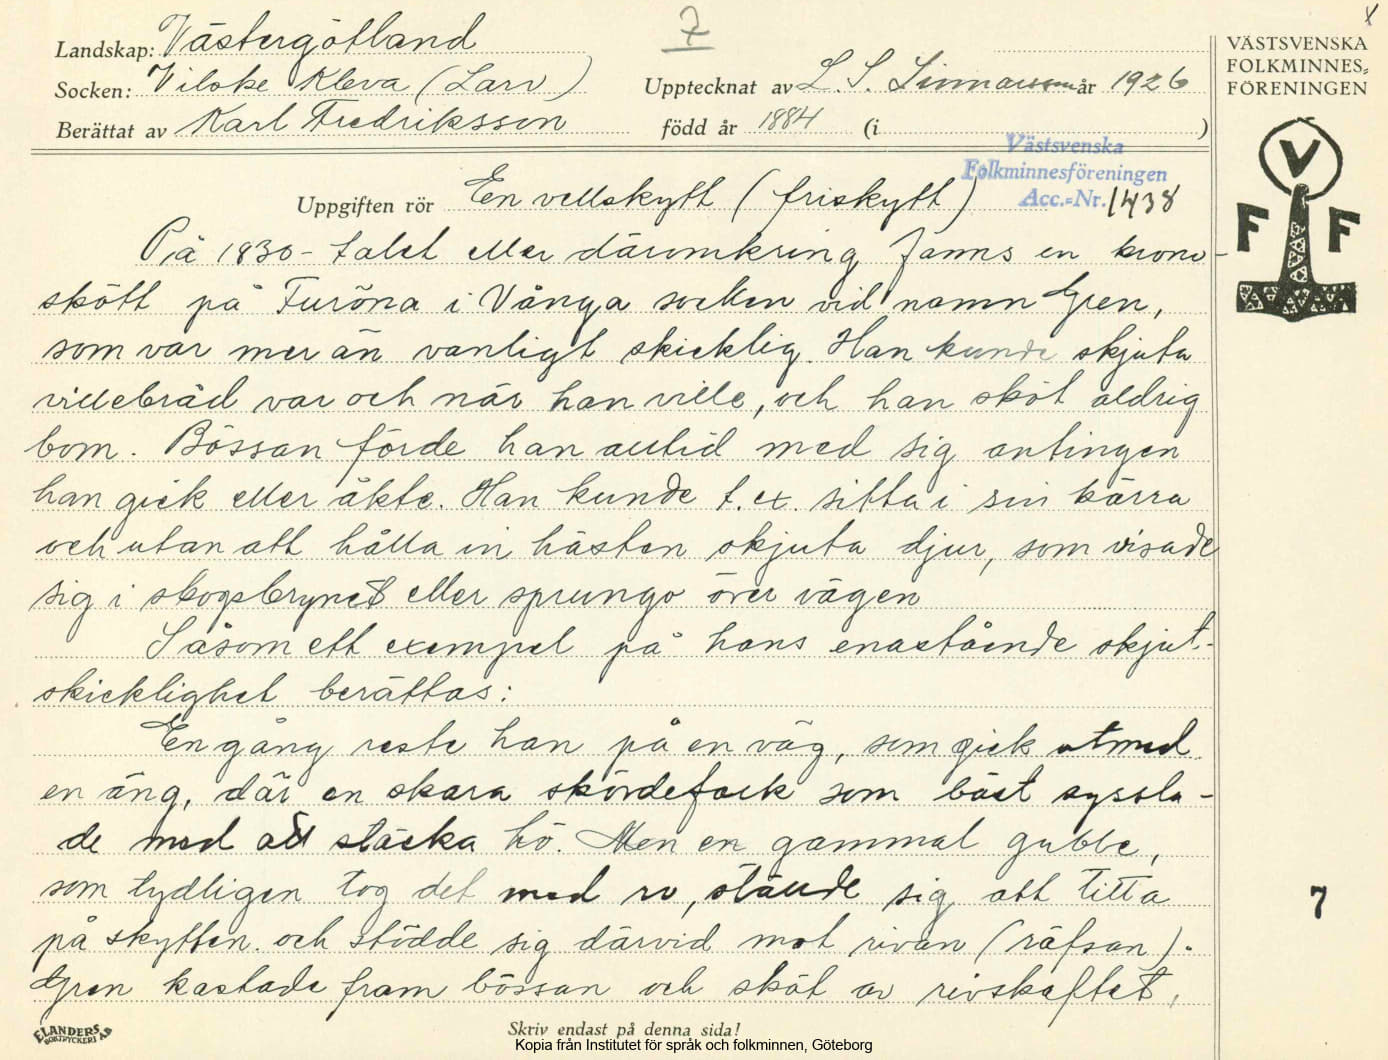 7
x
Landskap: Västergötland
Socken: Vilske Kleva (Larv)
Upptecknat av L. S. Linnarsson år 1926
Berättat av Karl Fredriksson född år 1884 (i )
VÄSTSVENSKA
FOLKMINNES=
FÖRENINGEN
V
F F
Västsvenska
Folkminnesföreningen
Acc.=Nr. 1438
Uppgiften rör En vellskytt (friskytt)
På 1830-talet eller däromkring fanns en krono-
skött på Furöna i Vånga socken vid namn Gren,
som var mer än vanligt skicklig. Han kunde skjuta
villebråd var och när han ville, och han sköt aldrig
bom. Bössan förde han alltid med sig antingen
han gick eller åkte. Han kunde t. ex. sitta i sin kärra
och utan att hålla in hästen skjuta djur, som visade
sig i skogsbrynet eller sprungo över vägen
Såsom ett exempel på hans enastående skjut-
skicklighet berättas:
En gång reste han på en väg, som gick utmed
en äng, där en skara skördefolk som bäst syssla-
de med att stäcka hö. Men en gammal gubbe,
som tydligen tog det med ro, ställde sig att titta
på skytten och stödde sig därvid mot rivan (räfsan).
Gren kastade fram bössan och sköt av rivskaftet,
7
ELANDERS
BOKTRYCKERI AB
Skriv endast på denna sida!
Kopia från Institutet för språk och folkminnen, Göteborg